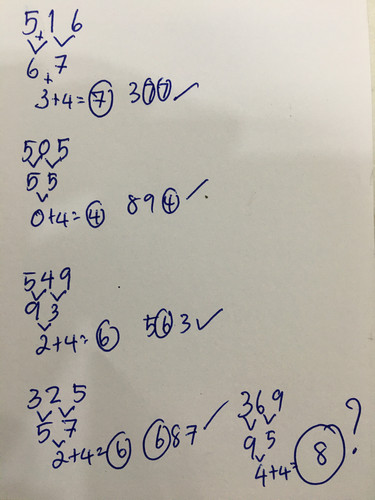 5 1 6
+
6 7
+
3+4=7 3 7 7 ✓
5 0 5
5 5
0+4=4 8 9 4 ✓
5 4 9
9 3
2+4=6 5 6 3 ✓
3 2 5
5 7
2+4=6 6 8 7 ✓
3 6 9
9 5
4+4= 8 ?